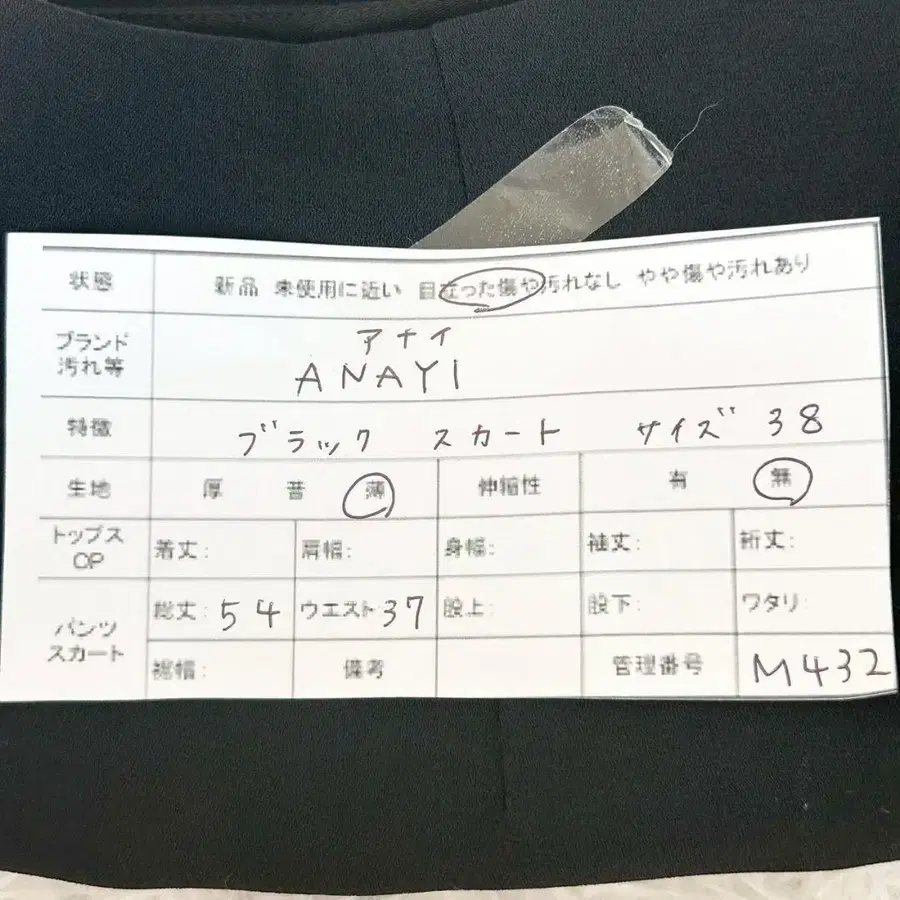 状態 新品 未使用に近い 目立った傷や汚れなし やや傷や汚れあり
ブランド アナイ
汚れ等 ANAYI
特徴 ブラック スカート サイズ 38
生地 厚 普 薄 伸縮性 有 無
トップス
OP 着丈: 肩幅: 身幅: 袖丈: 裄丈:
パンツ 総丈: 54 ウエスト 37 股上: 股下: ワタリ:
スカート 裾幅: 備考 管理番号 M432